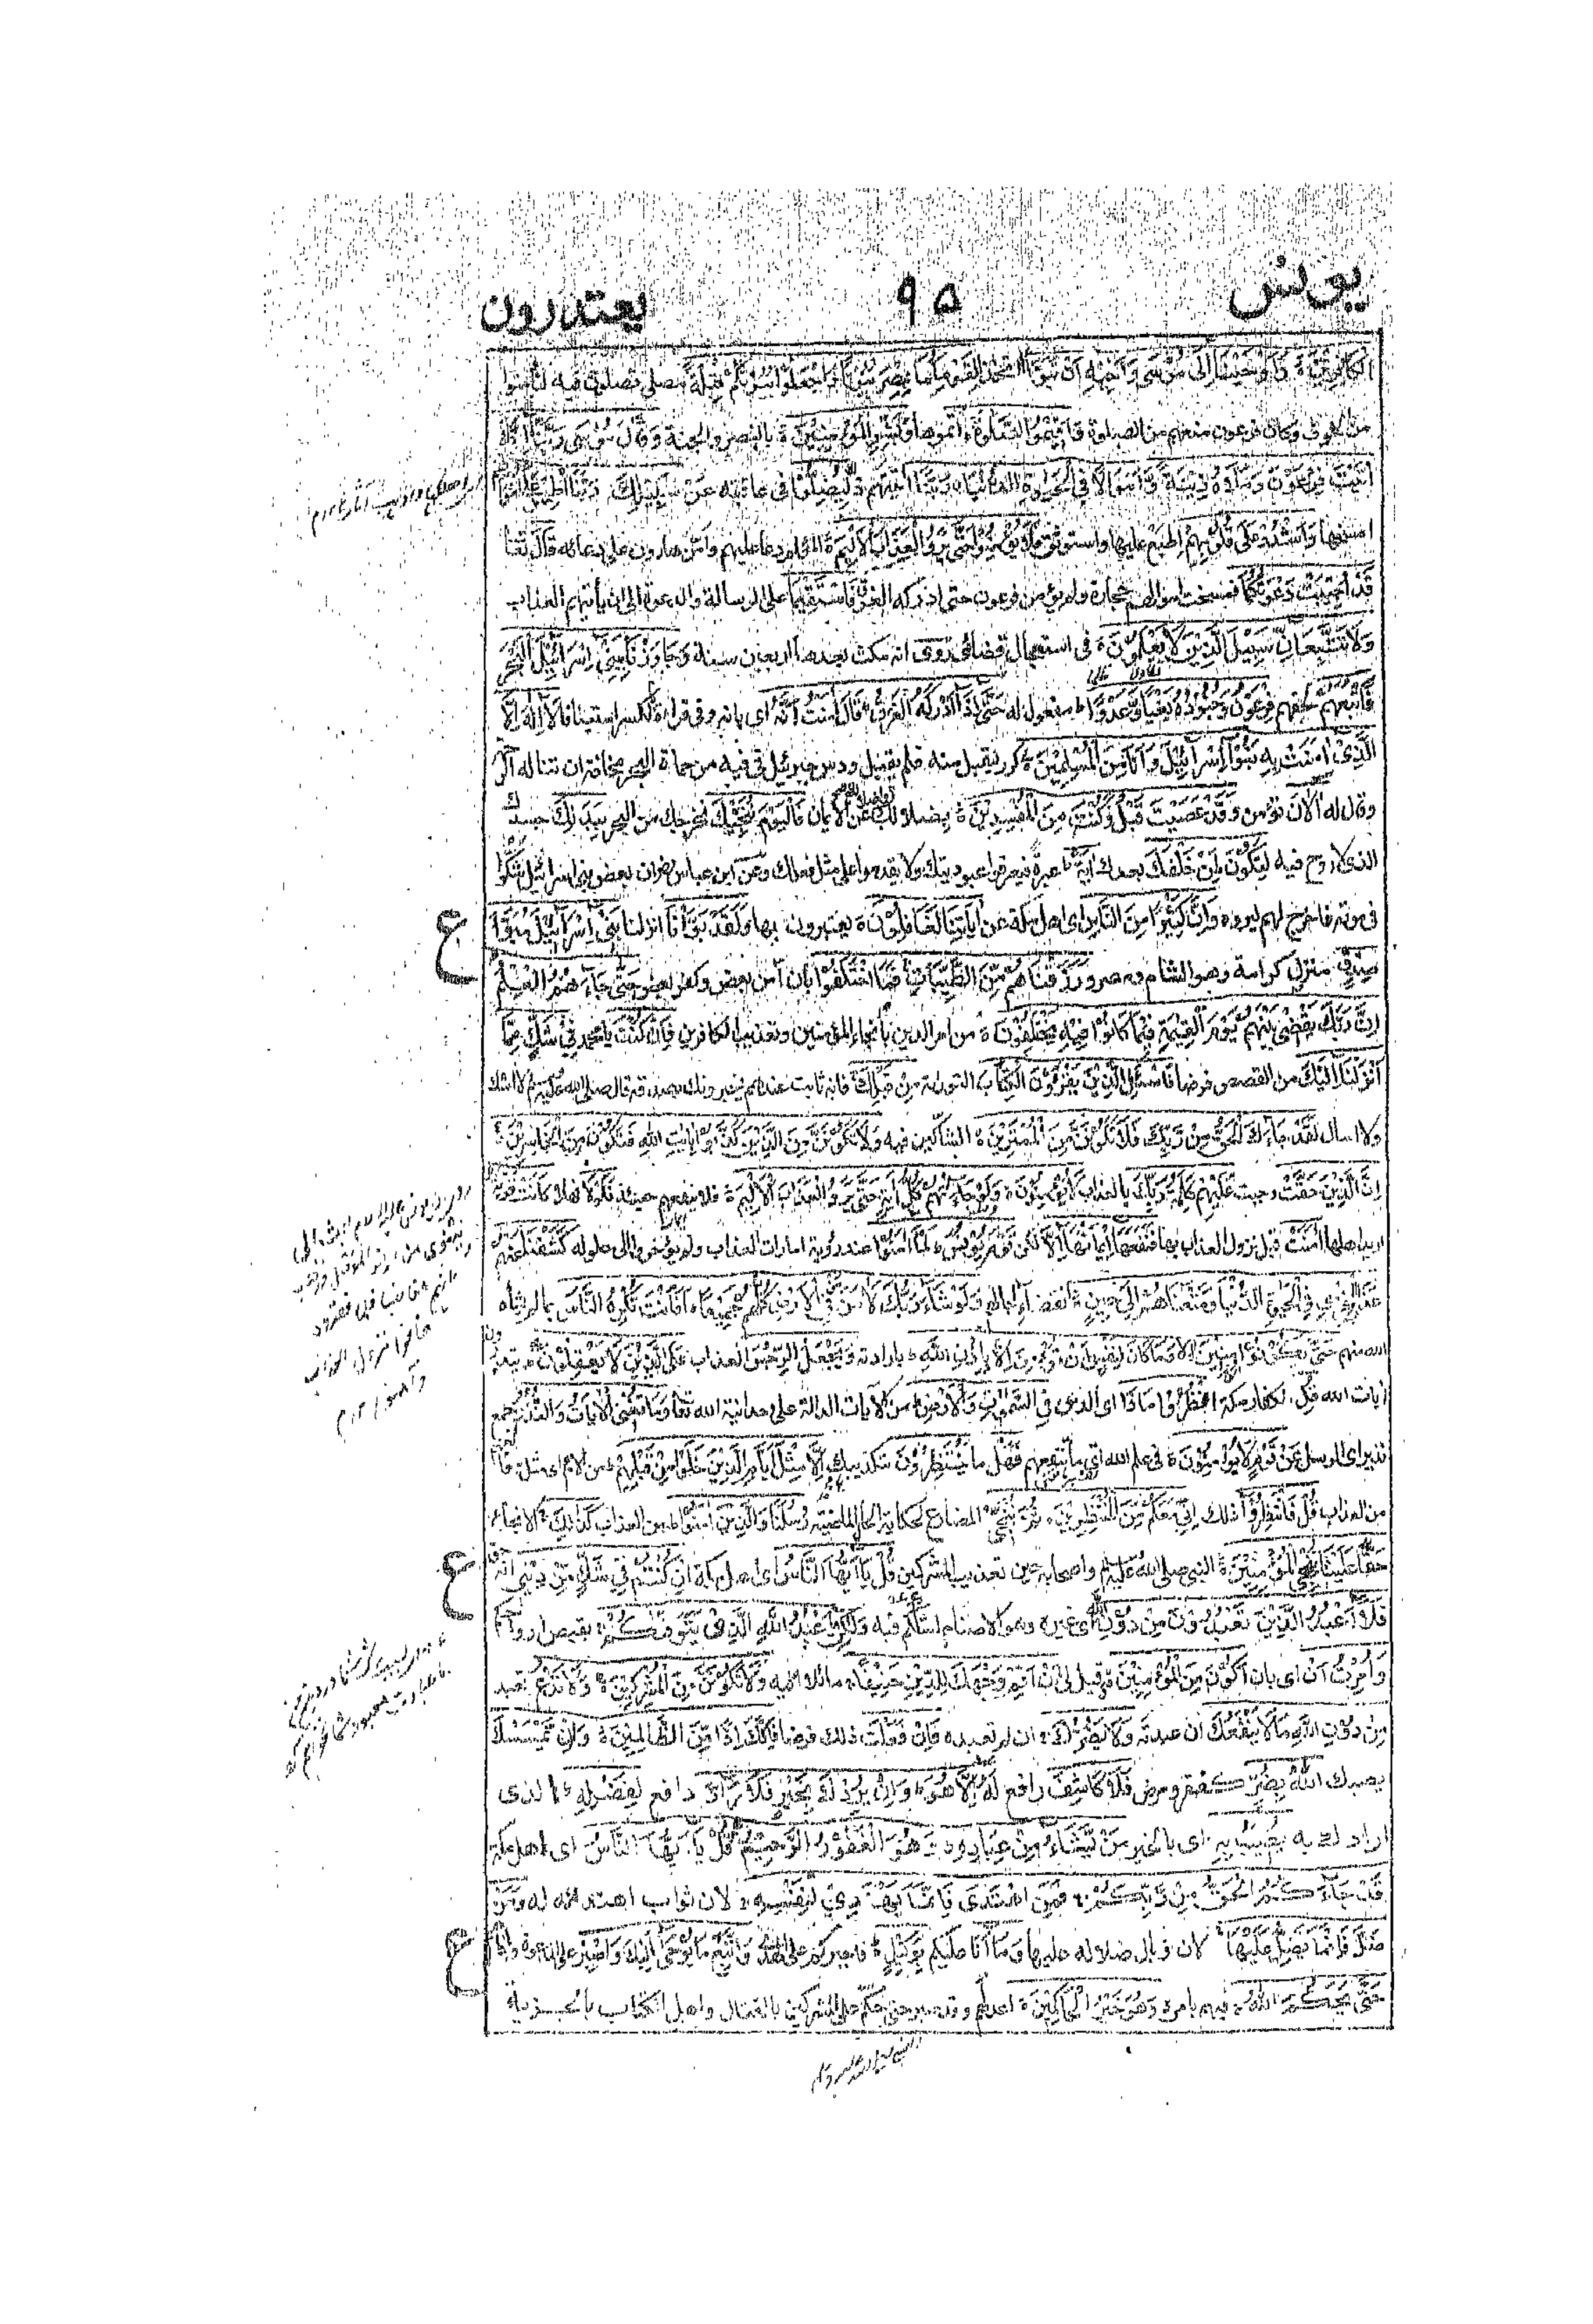 يونس
٩٥
يعتذرون
الْكَافِرِيْنَ وَاَوْحَيْنَا اِلٰى مُوْسٰى وَاَخِيْهِ اَنْ تَبَوَّاٰ اتخذا لِقَوْمِكُمَا بِمِصْرَ بُيُوْتًا وَّاجْعَلُوْا بُيُوْتَكُمْ قِبْلَةً مصلى تصلون فيه لتأمنوا
من الخوف وكان فرعون منعهم من الصلوة وَاَقِيْمُوا الصَّلٰوةَ اتموها وَبَشِّرِ الْمُؤْمِنِيْنَ بالنصر والجنة وَقَالَ مُوْسٰى رَبَّنَا اِنَّكَ
اٰتَيْتَ فِرْعَوْنَ وَمَلَاَهُ زِيْنَةً وَّاَمْوَالًا فِي الْحَيٰوةِ الدُّنْيَا رَبَّنَا اٰتيتهم ذلك لِيُضِلُّوْا فى عاقبته عَنْ سَبِيْلِكَ رَبَّنَا اطْمِسْ عَلٰى اَمْوَالِهِمْ
امسخها وَاشْدُدْ عَلٰى قُلُوْبِهِمْ اطبع عليها واستوثق فَلَا يُؤْمِنُوْا حَتّٰى يَرَوُا الْعَذَابَ الْاَلِيْمَ المؤلم دعا عليهم وامن هارون على دعائه قَالَ تعالى
قَدْ اُجِيْبَتْ دَعْوَتُكُمَا فمسخت اموالهم حجارة ولم يؤمن فرعون حتى ادركه الغرق فَاسْتَقِيْمَا على الرسالة والدعوة الى ان يأتيهم العذاب
وَلَا تَتَّبِعَانِّ سَبِيْلَ الَّذِيْنَ لَا يَعْلَمُوْنَ فى استعجال قضائى روى انه مكث بعدها اربعين سنة وَجَاوَزْنَا بِبَنِيْ اِسْرَائِيْلَ الْبَحْرَ
فَاَتْبَعَهُمْ لحقهم فِرْعَوْنُ وَجُنُوْدُهُ بَغْيًا وَّعَدْوًا مفعول له حَتّٰى اِذَا اَدْرَكَهُ الْغَرَقُ قَالَ اٰمَنْتُ اَنَّهُ اى بانه وفى قراءة بالكسر استينافا لَا اِلٰهَ اِلَّا
الَّذِيْ اٰمَنَتْ بِهِ بَنُوْا اِسْرَائِيْلَ وَاَنَا مِنَ الْمُسْلِمِيْنَ كرره ليقبل منه فلم يقبل ودس جبرئيل فى فيه من حمأة البحر مخافة ان تناله الرحمة
وقال له اٰلْاٰنَ تؤمن وَقَدْ عَصَيْتَ قَبْلُ وَكُنْتَ مِنَ الْمُفْسِدِيْنَ بضلالك عن الايمان فَالْيَوْمَ نُنَجِّيْكَ نخرجك من البحر بِبَدَنِكَ جسدك
الذى لا روح فيه لِتَكُوْنَ لِمَنْ خَلْفَكَ بعدك اٰيَةً عبرة فيعرفوا عبوديتك ولا يقدموا على مثل فعلك وعن ابن عباس ان بعض بنى اسرائيل شكوا
فى موته فاخرج لهم ليروه وَاِنَّ كَثِيْرًا مِّنَ النَّاسِ اى اهل مكة عَنْ اٰيَاتِنَا لَغَافِلُوْنَ لا يعتبرون بها وَلَقَدْ بَوَّأْنَا انزلنا بَنِيْ اِسْرَائِيْلَ مُبَوَّاَ
صِدْقٍ منزل كرامة وهو الشام ومصر وَّرَزَقْنَاهُمْ مِّنَ الطَّيِّبَاتِ فَمَا اخْتَلَفُوْا بان آمن بعض وكفر بعض حَتّٰى جَاءَهُمُ الْعِلْمُ
اِنَّ رَبَّكَ يَقْضِيْ بَيْنَهُمْ يَوْمَ الْقِيٰمَةِ فِيْمَا كَانُوْا فِيْهِ يَخْتَلِفُوْنَ من امر الدين بانجاء المؤمنين وتعذيب الكافرين فَاِنْ كُنْتَ يا محمد فِيْ شَكٍّ مِّمَّا
اَنْزَلْنَا اِلَيْكَ من القصص فرضا فَاسْئَلِ الَّذِيْنَ يَقْرَءُوْنَ الْكِتَابَ التورية مِنْ قَبْلِكَ فانه ثابت عندهم يخبرونك بصدقه قال صلى الله عليه وسلم لا اشك
ولا اسال لَقَدْ جَاءَكَ الْحَقُّ مِنْ رَّبِّكَ فَلَا تَكُوْنَنَّ مِنَ الْمُمْتَرِيْنَ الشاكين فيه وَلَا تَكُوْنَنَّ مِنَ الَّذِيْنَ كَذَّبُوْا بِاٰيٰتِ اللّٰهِ فَتَكُوْنَ مِنَ الْخَاسِرِيْنَ
اِنَّ الَّذِيْنَ حَقَّتْ وجبت عَلَيْهِمْ كَلِمَةُ رَبِّكَ بالعذاب لَا يُؤْمِنُوْنَ وَلَوْ جَاءَتْهُمْ كُلُّ اٰيَةٍ حَتّٰى يَرَوُا الْعَذَابَ الْاَلِيْمَ فلا ينفعهم حينئذ فَلَوْلَا فهلا كَانَتْ قَرْيَةٌ
اريد اهلها اٰمَنَتْ قبل نزول العذاب بها فَنَفَعَهَا اِيْمَانُهَا اِلَّا لكن قَوْمَ يُوْنُسَ لَمَّا اٰمَنُوْا عند رؤية امارات العذاب ولم يؤخروا الى حلوله كَشَفْنَا عَنْهُمْ
عَذَابَ الْخِزْيِ فِي الْحَيٰوةِ الدُّنْيَا وَمَتَّعْنَاهُمْ اِلٰى حِيْنٍ انقضاء آجالهم وَلَوْ شَاءَ رَبُّكَ لَاٰمَنَ مَنْ فِي الْاَرْضِ كُلُّهُمْ جَمِيْعًا اَفَاَنْتَ تُكْرِهُ النَّاسَ بما لم يشاه
الله منهم حَتّٰى يَكُوْنُوْا مُؤْمِنِيْنَ لا وَمَا كَانَ لِنَفْسٍ اَنْ تُؤْمِنَ اِلَّا بِاِذْنِ اللّٰهِ بارادته وَيَجْعَلُ الرِّجْسَ العذاب عَلَى الَّذِيْنَ لَا يَعْقِلُوْنَ يتدبرون
اٰيات الله قُلْ لكفار مكة انْظُرُوْا مَاذَا اى الذى فِي السَّمٰوٰتِ وَالْاَرْضِ من الآيات الدالة على وحدانية الله تعالى وَمَا تُغْنِي الْاٰيَاتُ وَالنُّذُرُ جمع
نذير اى الرسل عَنْ قَوْمٍ لَّا يُؤْمِنُوْنَ فى علم الله اى ما تنفعهم فَهَلْ ما يَنْتَظِرُوْنَ بتكذيبك اِلَّا مِثْلَ اَيَّامِ الَّذِيْنَ خَلَوْا مِنْ قَبْلِهِمْ من الامم اى مثل وقائعهم
من العذاب قُلْ فَانْتَظِرُوْا ذلك اِنِّيْ مَعَكُمْ مِّنَ الْمُنْتَظِرِيْنَ ثُمَّ نُنَجِّيْ المضارع لحكاية الحال الماضية رُسُلَنَا وَالَّذِيْنَ اٰمَنُوْا من العذاب كَذٰلِكَ الانجاء
حَقًّا عَلَيْنَا نُنْجِ الْمُؤْمِنِيْنَ النبى صلى الله عليه وسلم واصحابه حين تعذيب المشركين قُلْ يَا اَيُّهَا النَّاسُ اى اهل مكة اِنْ كُنْتُمْ فِيْ شَكٍّ مِّنْ دِيْنِيْ انه حق
فَلَا اَعْبُدُ الَّذِيْنَ تَعْبُدُوْنَ مِنْ دُوْنِ اللّٰهِ اى غيره وهو الاصنام لشككم فيه وَلٰكِنْ اَعْبُدُ اللّٰهَ الَّذِيْ يَتَوَفّٰكُمْ بقبض ارواحكم
وَاُمِرْتُ اَنْ اى بان اَكُوْنَ مِنَ الْمُؤْمِنِيْنَ وقيل لى اَنْ اَقِمْ وَجْهَكَ لِلدِّيْنِ حَنِيْفًا مائلا اليه وَلَا تَكُوْنَنَّ مِنَ الْمُشْرِكِيْنَ وَلَا تَدْعُ تعبد
مِنْ دُوْنِ اللّٰهِ مَا لَا يَنْفَعُكَ ان عبدته وَلَا يَضُرُّكَ ان لم تعبده فَاِنْ فَعَلْتَ ذلك فرضا فَاِنَّكَ اِذًا مِّنَ الظَّالِمِيْنَ وَاِنْ يَّمْسَسْكَ
يصبك اللّٰهُ بِضُرٍّ كفقر ومرض فَلَا كَاشِفَ رافع لَهُ اِلَّا هُوَ وَاِنْ يُرِدْكَ بِخَيْرٍ فَلَا رَادَّ دافع لِفَضْلِهِ الذى
ارادك به يُصِيْبُ بِهِ اى بالخير مَنْ يَّشَاءُ مِنْ عِبَادِهِ وَهُوَ الْغَفُوْرُ الرَّحِيْمُ قُلْ يَا اَيُّهَا النَّاسُ اى اهل مكة
قَدْ جَاءَكُمُ الْحَقُّ مِنْ رَّبِّكُمْ فَمَنِ اهْتَدٰى فَاِنَّمَا يَهْتَدِيْ لِنَفْسِهِ لان ثواب اهتدائه له وَمَنْ
ضَلَّ فَاِنَّمَا يَضِلُّ عَلَيْهَا لان وبال ضلاله عليها وَمَا اَنَا عَلَيْكُمْ بِوَكِيْلٍ فاجبركم على الهدى وَاتَّبِعْ مَا يُوْحٰى اِلَيْكَ وَاصْبِرْ على الدعوة واذاهم
حَتّٰى يَحْكُمَ اللّٰهُ فيهم بامره وَهُوَ خَيْرُ الْحَاكِمِيْنَ اعدلهم وقد صبر حتى حكم على المشركين بالقتال واهل الكتاب بالجزية
ع
ع
ع